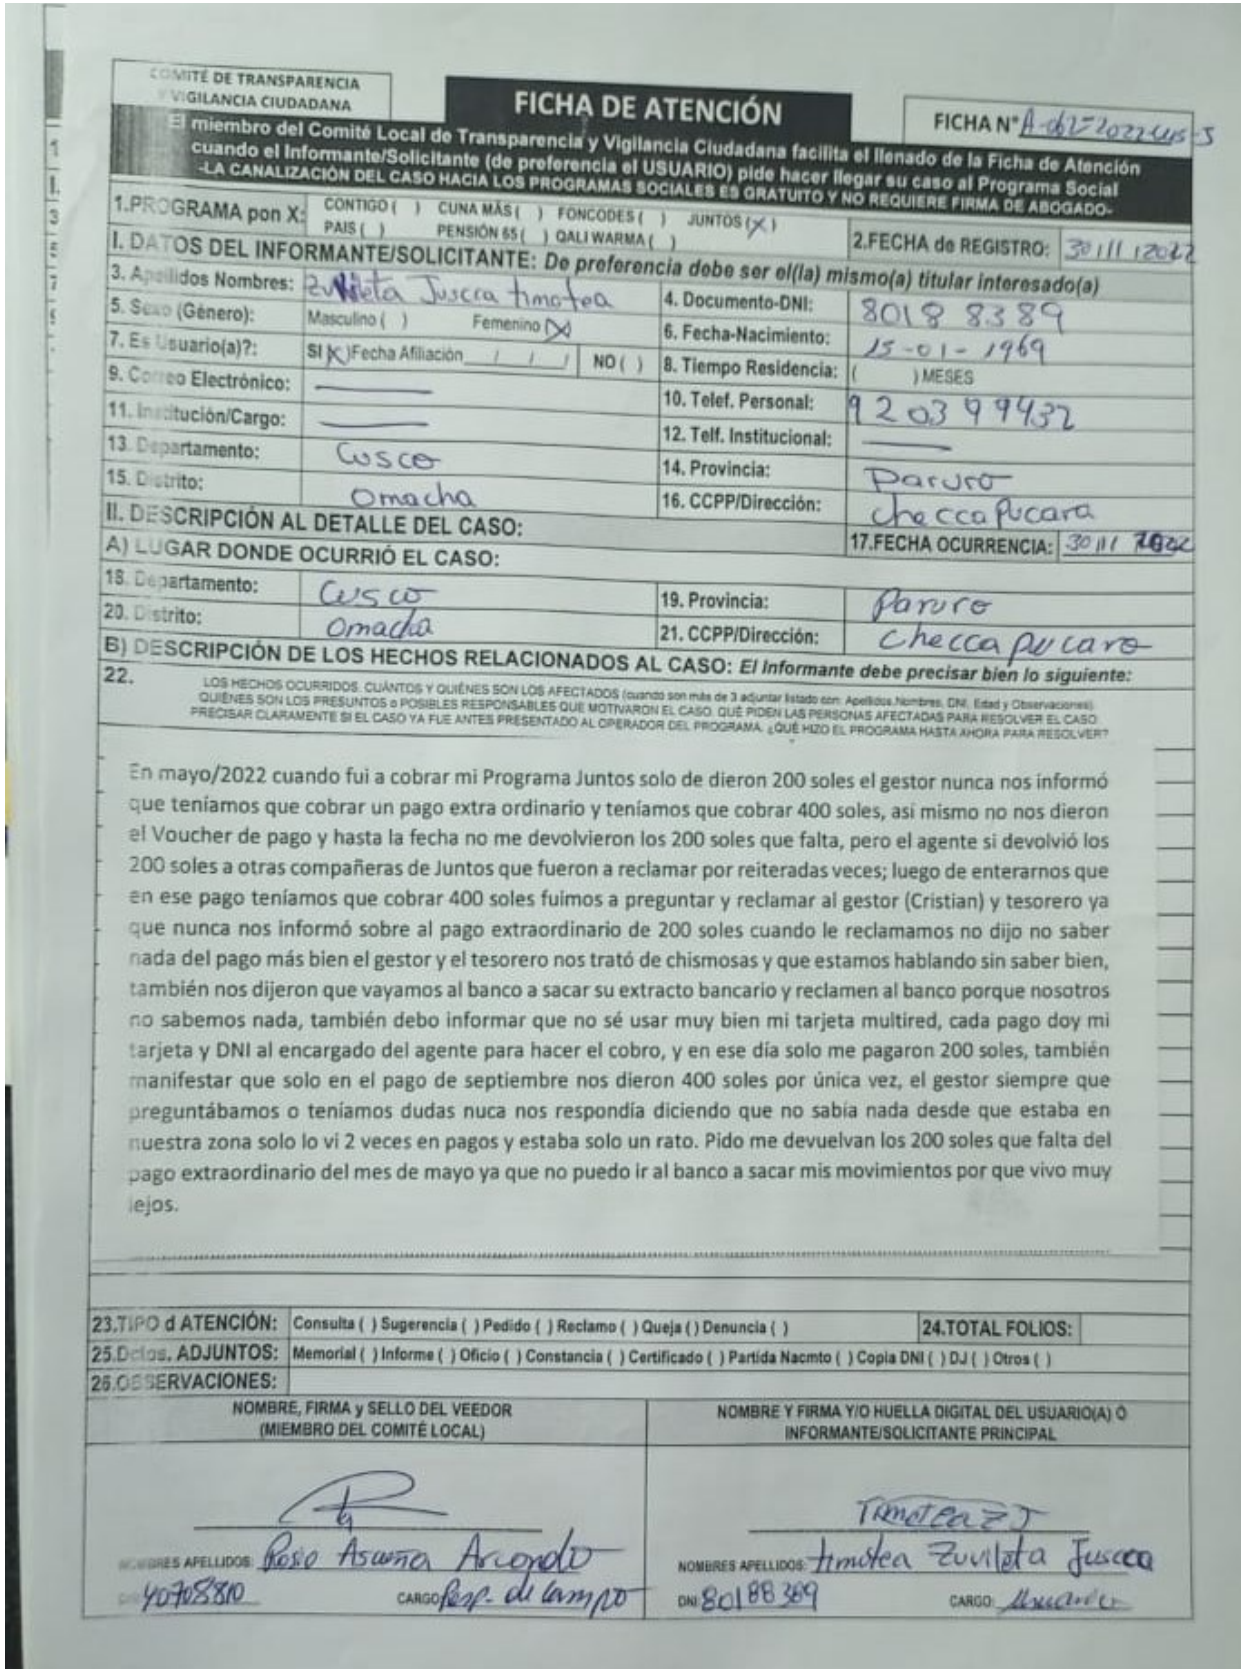 COMITÉ DE TRANSPARENCIA
Y VIGILANCIA CIUDADANA
FICHA DE ATENCIÓN
FICHA N°
El miembro del Comité Local de Transparencia y Vigilancia Ciudadana facilita el llenado de la Ficha de Atención
cuando el Informante/Solicitante (de preferencia el USUARIO) pide hacer llegar su caso al Programa Social
-LA CANALIZACIÓN DEL CASO HACIA LOS PROGRAMAS SOCIALES ES GRATUITO Y NO REQUIERE FIRMA DE ABOGADO-
1.PROGRAMA pon X: CONTIGO ( ) CUNA MÁS ( ) FONCODES ( ) JUNTOS (X)
PAIS ( ) PENSIÓN 65 ( ) QALI WARMA ( )
2.FECHA de REGISTRO: 30/11/2022
I. DATOS DEL INFORMANTE/SOLICITANTE: De preferencia debe ser el(la) mismo(a) titular interesado(a)
3. Apellidos Nombres: Zuvileta Juscca timotea 4. Documento-DNI: 80188389
5. Sexo (Género): Masculino ( ) Femenino (X) 6. Fecha-Nacimiento: 15-01-1969
7. Es Usuario(a)?: SI (X) Fecha Afiliación / / / NO ( ) 8. Tiempo Residencia: ( ) MESES
9. Correo Electrónico: 10. Telef. Personal: 920399432
11. Institución/Cargo: 12. Telf. Institucional:
13. Departamento: Cusco 14. Provincia: Paruro
15. Distrito: Omacha 16. CCPP/Dirección: checcapucara
II. DESCRIPCIÓN AL DETALLE DEL CASO: 17.FECHA OCURRENCIA: 30/11/2022
A) LUGAR DONDE OCURRIÓ EL CASO:
18. Departamento: Cusco 19. Provincia: Paruro
20. Distrito: Omacha 21. CCPP/Dirección: checcapucara
B) DESCRIPCIÓN DE LOS HECHOS RELACIONADOS AL CASO: El Informante debe precisar bien lo siguiente:
22. LOS HECHOS OCURRIDOS. CUÁNTOS Y QUIÉNES SON LOS AFECTADOS (cuando son más de 3 adjuntar listado con: Apellidos,Nombres, DNI, Edad y Observaciones).
QUIÉNES SON LOS PRESUNTOS o POSIBLES RESPONSABLES QUE MOTIVARON EL CASO. QUÉ PIDEN LAS PERSONAS AFECTADAS PARA RESOLVER EL CASO.
PRECISAR CLARAMENTE SI EL CASO YA FUE ANTES PRESENTADO AL OPERADOR DEL PROGRAMA. ¿QUÉ HIZO EL PROGRAMA HASTA AHORA PARA RESOLVER?
En mayo/2022 cuando fui a cobrar mi Programa Juntos solo de dieron 200 soles el gestor nunca nos informó
que teníamos que cobrar un pago extra ordinario y teníamos que cobrar 400 soles, así mismo no nos dieron
el Voucher de pago y hasta la fecha no me devolvieron los 200 soles que falta, pero el agente si devolvió los
200 soles a otras compañeras de Juntos que fueron a reclamar por reiteradas veces; luego de enterarnos que
en ese pago teníamos que cobrar 400 soles fuimos a preguntar y reclamar al gestor (Cristian) y tesorero ya
que nunca nos informó sobre al pago extraordinario de 200 soles cuando le reclamamos no dijo no saber
nada del pago más bien el gestor y el tesorero nos trató de chismosas y que estamos hablando sin saber bien,
también nos dijeron que vayamos al banco a sacar su extracto bancario y reclamen al banco porque nosotros
no sabemos nada, también debo informar que no sé usar muy bien mi tarjeta multired, cada pago doy mi
tarjeta y DNI al encargado del agente para hacer el cobro, y en ese día solo me pagaron 200 soles, también
manifestar que solo en el pago de septiembre nos dieron 400 soles por única vez, el gestor siempre que
preguntábamos o teníamos dudas nuca nos respondía diciendo que no sabía nada desde que estaba en
nuestra zona solo lo vi 2 veces en pagos y estaba solo un rato. Pido me devuelvan los 200 soles que falta del
pago extraordinario del mes de mayo ya que no puedo ir al banco a sacar mis movimientos por que vivo muy
lejos.
23.TIPO d ATENCIÓN: Consulta ( ) Sugerencia ( ) Pedido ( ) Reclamo ( ) Queja ( ) Denuncia ( ) 24.TOTAL FOLIOS:
25.Dctos. ADJUNTOS: Memorial ( ) Informe ( ) Oficio ( ) Constancia ( ) Certificado ( ) Partida Nacmto ( ) Copia DNI ( ) DJ ( ) Otros ( )
26.OBSERVACIONES:
NOMBRE, FIRMA y SELLO DEL VEEDOR
(MIEMBRO DEL COMITÉ LOCAL)
NOMBRES APELLIDOS: Rosio Ascuña Arcondo
DNI 40708810 CARGO Resp. de campo
NOMBRE Y FIRMA Y/O HUELLA DIGITAL DEL USUARIO(A) O
INFORMANTE/SOLICITANTE PRINCIPAL
Timotea Z J
NOMBRES APELLIDOS: timotea Zuvileta Juscca
DNI 80188389 CARGO: Usuaria